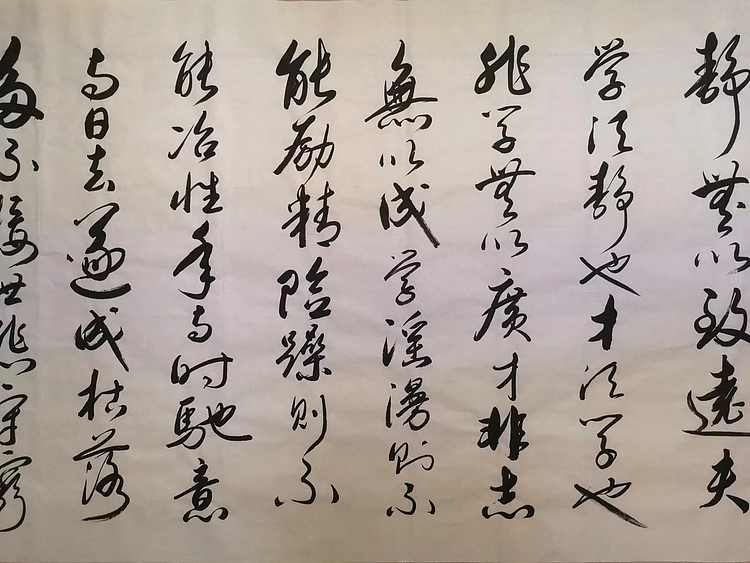 静無以致遠夫
学须静也才须学也
非学無以廣才非志
無以成学淫漫則不
能励精险躁則不
能冶性年与时馳意
与日去遂成枯落
多不接世悲守窮